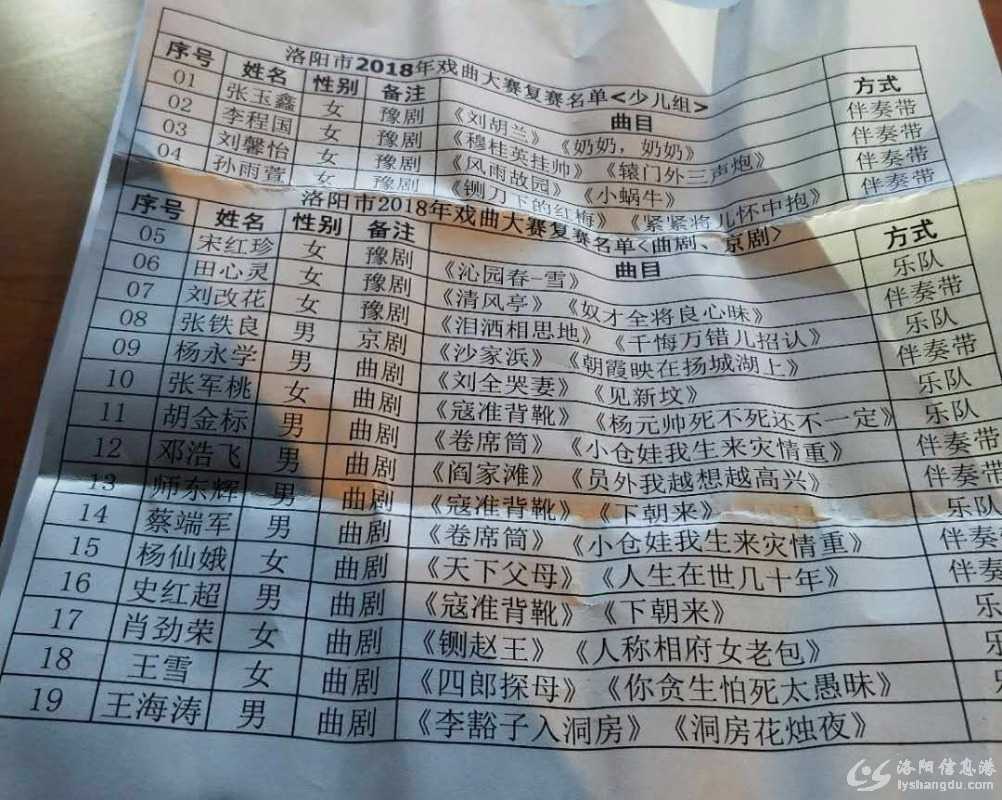 洛阳市2018年戏曲大赛复赛名单<少儿组>
序号 姓名 性别 备注 曲目 方式
01 张玉鑫 女 豫剧 《刘胡兰》《奶奶，奶奶》 伴奏带
02 李程国 女 豫剧 《穆桂英挂帅》《辕门外三声炮》 伴奏带
03 刘馨怡 女 豫剧 《风雨故园》《小蜗牛》 伴奏带
04 孙雨萱 女 豫剧 《铡刀下的红梅》《紧紧将儿怀中抱》 伴奏带
洛阳市2018年戏曲大赛复赛名单<曲剧、京剧>
序号 姓名 性别 备注 曲目 方式
05 宋红珍 女 豫剧 《沁园春-雪》 乐队
06 田心灵 女 豫剧 《清风亭》《奴才全将良心昧》 伴奏带
07 刘改花 女 豫剧 《泪洒相思地》《千悔万错儿招认》 乐队
08 张铁良 男 京剧 《沙家浜》《朝霞映在扬城湖上》 伴奏带
09 杨永学 男 曲剧 《刘全哭妻》《见新坟》 乐队
10 张军桃 女 曲剧 《寇准背靴》《杨元帅死不死还不一定》 乐队
11 胡金标 男 曲剧 《卷席筒》《小仓娃我生来灾情重》 伴奏带
12 邓浩飞 男 曲剧 《阎家滩》《员外我越想越高兴》 伴奏带
13 师东辉 男 曲剧 《寇准背靴》《下朝来》 乐队
14 蔡端军 男 曲剧 《卷席筒》《小仓娃我生来灾情重》 伴奏
15 杨仙娥 女 曲剧 《天下父母》《人生在世几十年》 伴奏
16 史红超 男 曲剧 《寇准背靴》《下朝来》 乐
17 肖劲荣 女 曲剧 《铡赵王》《人称相府女老包》 乐
18 王雪 女 曲剧 《四郎探母》《你贪生怕死太愚昧》
19 王海涛 男 曲剧 《李豁子入洞房》《洞房花烛夜》
洛阳信息港
lyshangdu.com